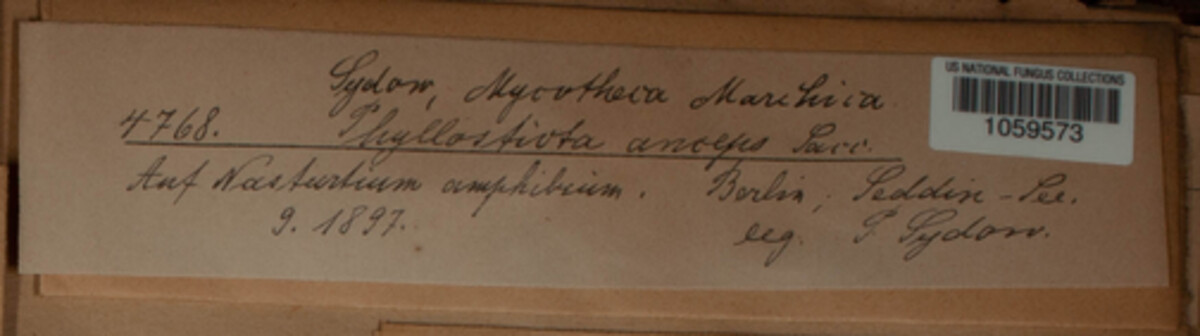 Sydow, Mycotheca Marchica
4768. Phyllosticta anceps Sacc.
Auf Nasturtium amphibium. Berlin; Seddin-See.
9. 1897. leg. P Sydow.
US NATIONAL FUNGUS COLLECTIONS
1059573